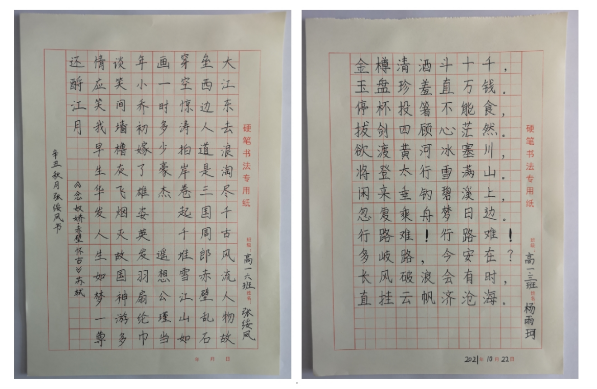 大江东去浪淘尽千古风流人物故
垒西边人道是三国周郎赤壁乱石
穿空惊涛拍岸卷起千堆雪江山如
画一时多少豪杰 遥想公瑾当
年小乔初嫁了雄姿英发羽扇纶巾
谈笑间墙橹灰飞烟灭故国神游多
情应笑我早生华发人生如梦一尊
还酹江月
念奴娇赤壁怀古 苏轼
辛丑秋月张绥风书
硬笔书法专用纸
高一六班
张绥风
年 月 日
金樽清酒斗十千，
玉盘珍羞直万钱。
停杯投箸不能食，
拔剑四顾心茫然。
欲渡黄河冰塞川，
将登太行雪满山。
闲来垂钓碧溪上，
忽复乘舟梦日边。
行路难！行路难！
多歧路，今安在？
长风破浪会有时，
直挂云帆济沧海。
硬笔书法专用纸
高一三班
杨雨珂
2021年10月22日